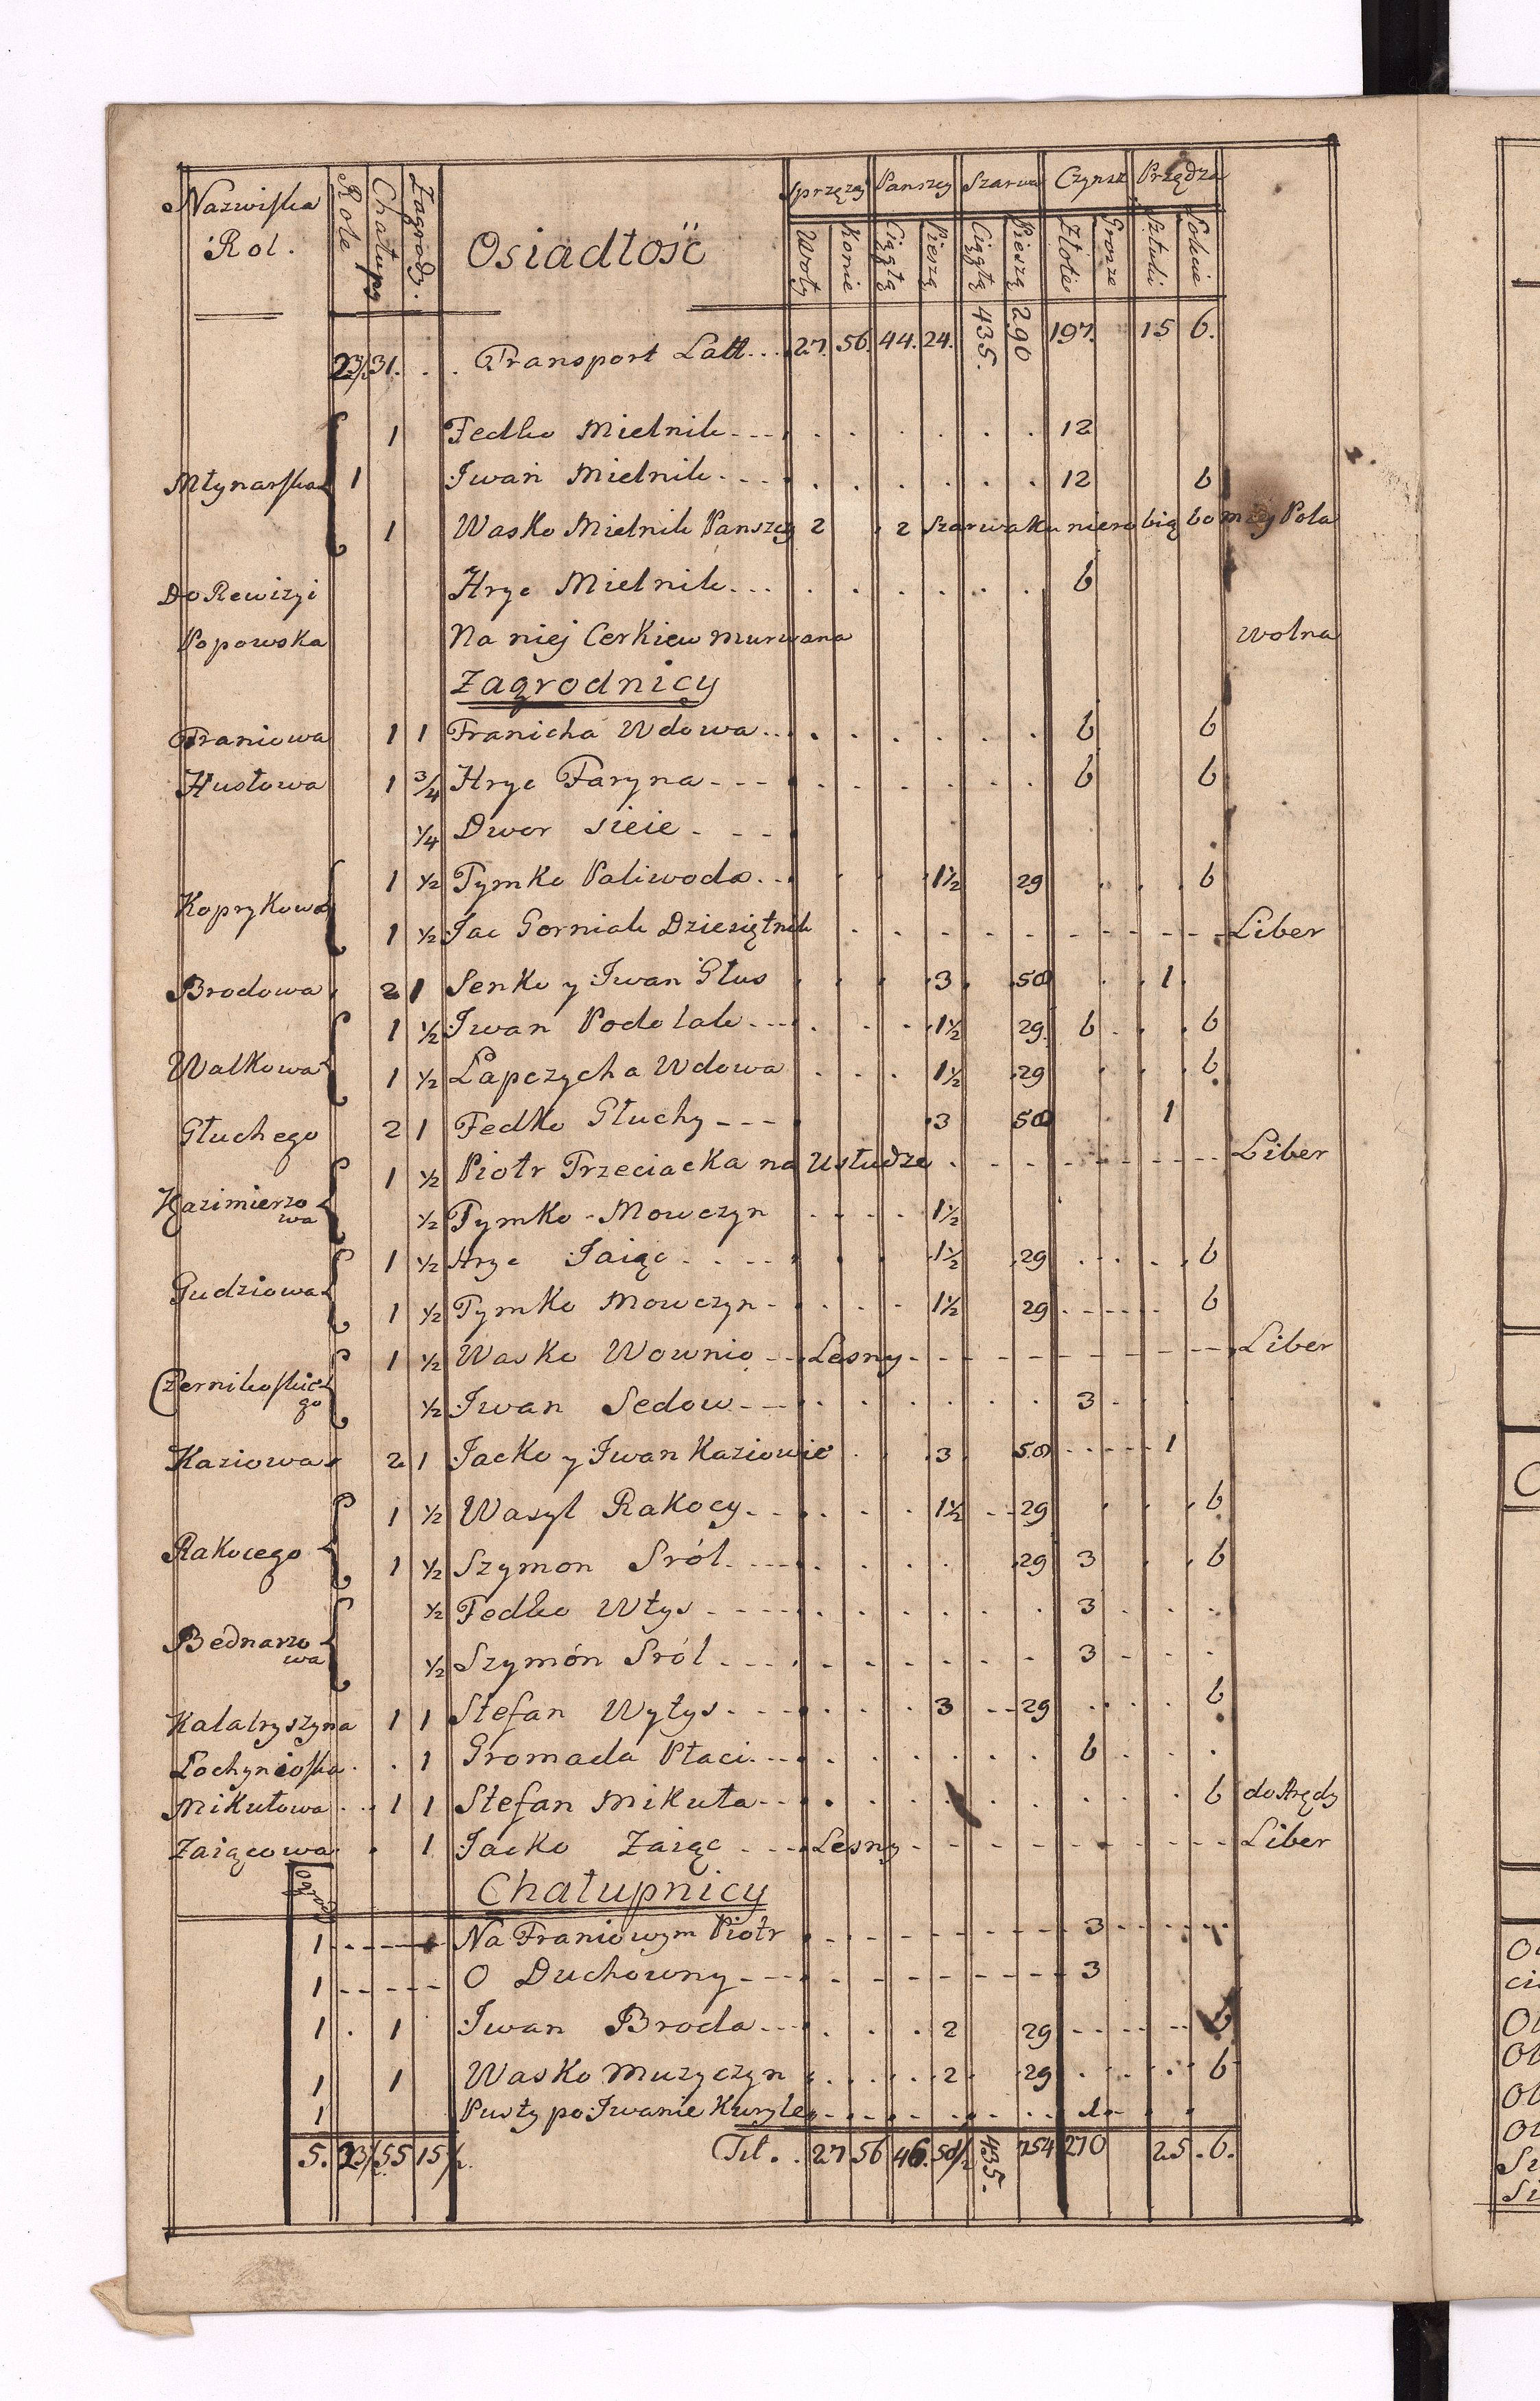 Nazwiska Rol. Role Chałupy Zagrody. Osiadłość Sprzęzay Panszcy Szarwa Czynsz Przędza
Woły Konie Ciągłą Pieszą Ciągłą Pieszą Złotie Grosze Sztuki Łokcie
23/2 31. . . Transport Latt... 27. 56. 44. 24. 435. 290 197. 15 6.
1 Fedko Mielnik 12
Młynarska 1 Iwan Mielnik 12 6
1 Wasko Mielnik Panszcy 2 2 Szarwaku nierobią bo mają Pola
Do Rewizyi Hryc Mielnik 6
Popowska Na niej Cerkiew murwana wolna
Zagrodnicy
Franiowa 1 1 Franicha Wdowa 6 6
Hustowa 1 3/4 Hryc Faryna 6 6
1/4 Dwor sieie
Koprykowa 1 1/2 Tymko Paliwoda 1 1/2 29 6
1 1/2 Jac Gorniak Dziesiętnik Liber
Brodowa 2 1 Senko y Iwan Głus 3 58 1
Walkowa 1 1/2 Iwan Podolak 1 1/2 29 6 6
1 1/2 Łapczycha Wdowa 1 1/2 29 6
Głuchego 2 1 Fedko Głuchy 3 58 1
Kazimierzowa 1 1/2 Piotr Trzeciacka na Usłudze Liber
1/2 Tymko Mowczyn 1 1/2
Gudziowa 1 1/2 Hryc Zaiąc 1 1/2 29 6
1 1/2 Tymko Mowczyn 1 1/2 29 6
Czernikoskiego 1 1/2 Wasko Wownio Lesny Liber
1/2 Iwan Sedow 3
Kaziowa 2 1 Jacko y Iwan Kaziowie 3 58 1
Rakocego 1 1/2 Wasyl Rakocy 1 1/2 29 6
1 1/2 Szymon Sról 29 3 6
Bednarzowa 1/2 Fedko Wtys 3
1/2 Szymón Sról 3
Kalatryszyna 1 1 Stefan Wytys 3 29 6
Łochynioska 1 Gromada Płaci 6
Mikułowa 1 1 Stefan Mikuła 6 do Arędy
Zaiącowa 1 Jacko Zaiąc Lesny Liber
Chałupnicy
1 Na Franiowym Piotr 3
1 O Duchowny 3
1 1 Iwan Broda 2 29 6
1 1 Wasko Muzyczyn 2 29 6
1 Pusty po Iwanie Kuryle
5. 23/2 55 15/2 Tit. 27 56 46. 50/2 435. 754 270 25 6.